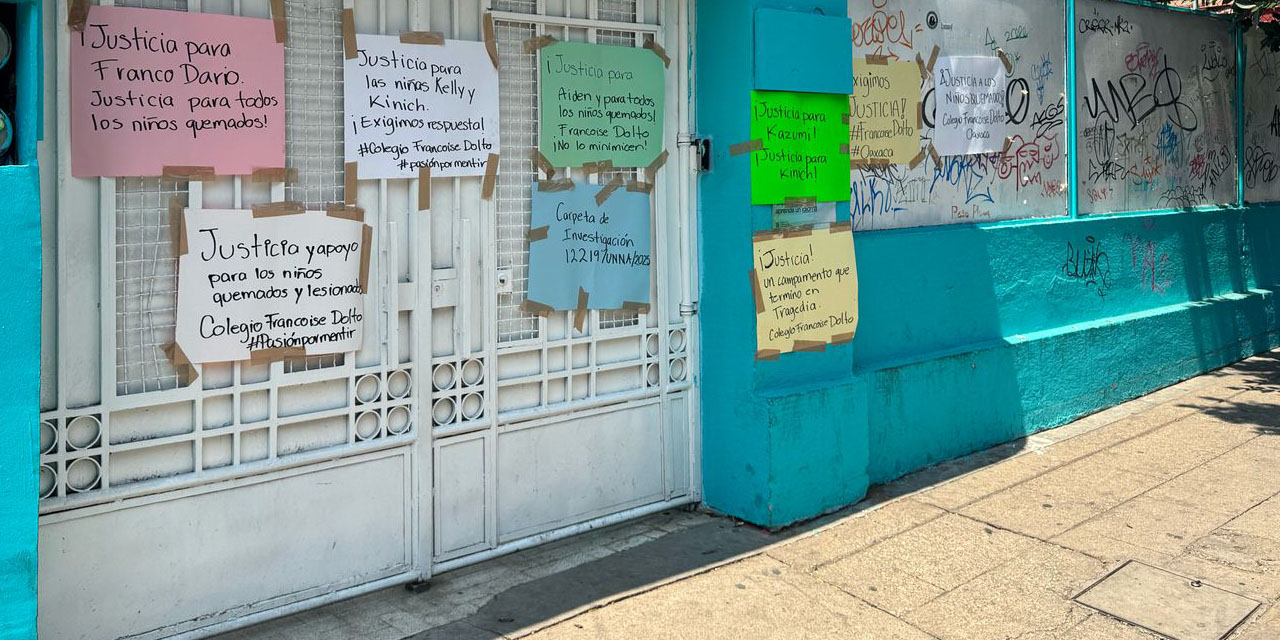 ¡Justicia para
Franco Dario.
Justicia para todos
los niños quemados!
Justicia para
las niñas Kelly y
Kinich.
¡Exigimos respuesta!
#Colegio Francoise Dolto
#pasiónpormentir
¡Justicia para
Aiden y para todos
los niños quemados!
Francoise Dolto
¡No lo minimicen!
Justicia y apoyo
para los niños
quemados y lesionados
Colegio Francoise Dolto
#Pasiónpormentir
Carpeta de
Investigación
12219/UNNA/2025
¡Justicia para
Kazumi!
¡Justicia para
Kinich!
¡Justicia!
un campamento que
termino en
Tragedia.
Colegio Francoise Dolto
Exigimos
JUSTICIA!
#Francoise Dolto
#Oaxaca
JUSTICIA A LOS
NIÑOS QUEMADOS
Colegio Francoise Dolto
Oaxaca